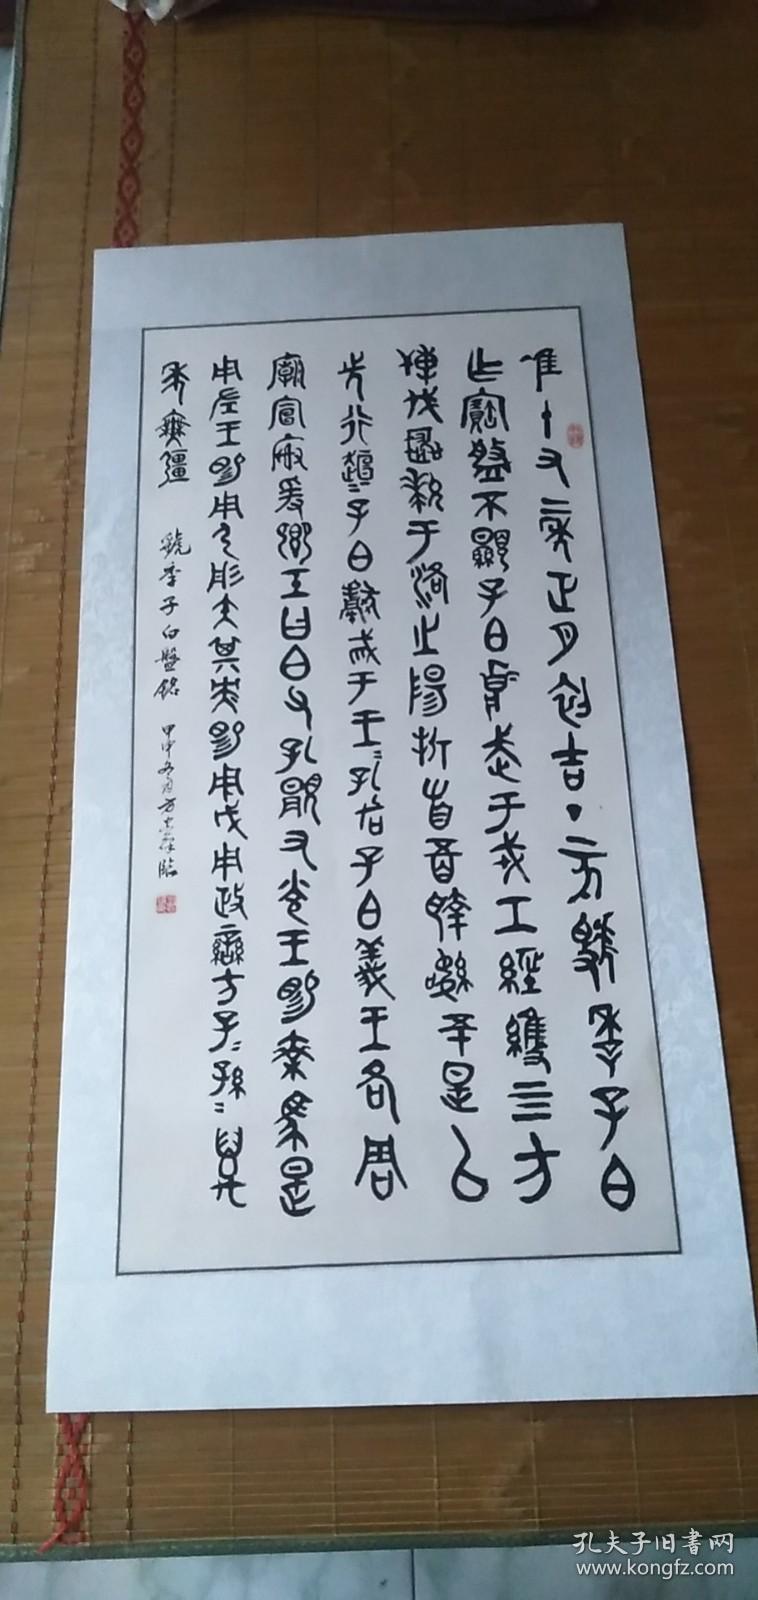 隹十又二年正月初吉丁亥虢季子白
乍寶盤不顯子白壯武于戎工經維四方
搏伐玁狁于洛之陽折首五百執訊五十是以
先行趄=子白獻馘于王=孔加子白義王各周
廟宣廚爰鄉王曰白父孔顯又光王賜乘馬是
用左王賜用弓彤矢其央賜用戉用政蠻方子=孫=萬
年無疆
虢季子白盤銘 甲申冬月
臨
孔夫子旧書网
www.kongfz.com